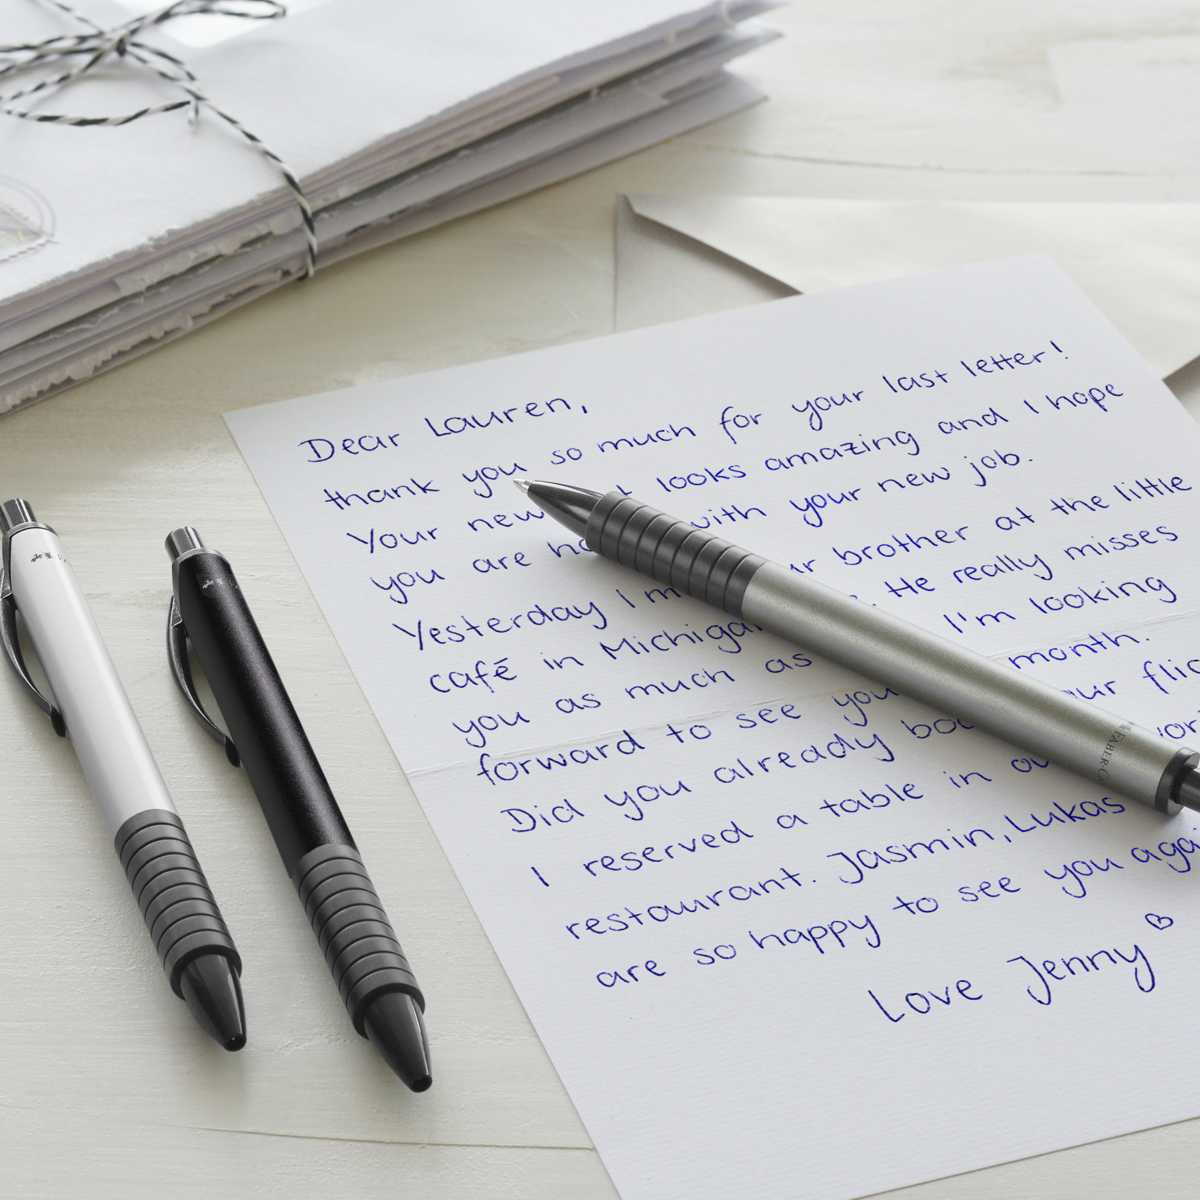 Dear Lauren,
thank you so much for your last letter!
Your new looks amazing and I hope
you are with your new job.
Yesterday I brother at the little
café in Michigan He really misses
you as much as I'm looking
forward to see you month.
Did you already your
I reserved a table in
restaurant. Jasmin, Lukas
are so happy to see you
Love Jenny